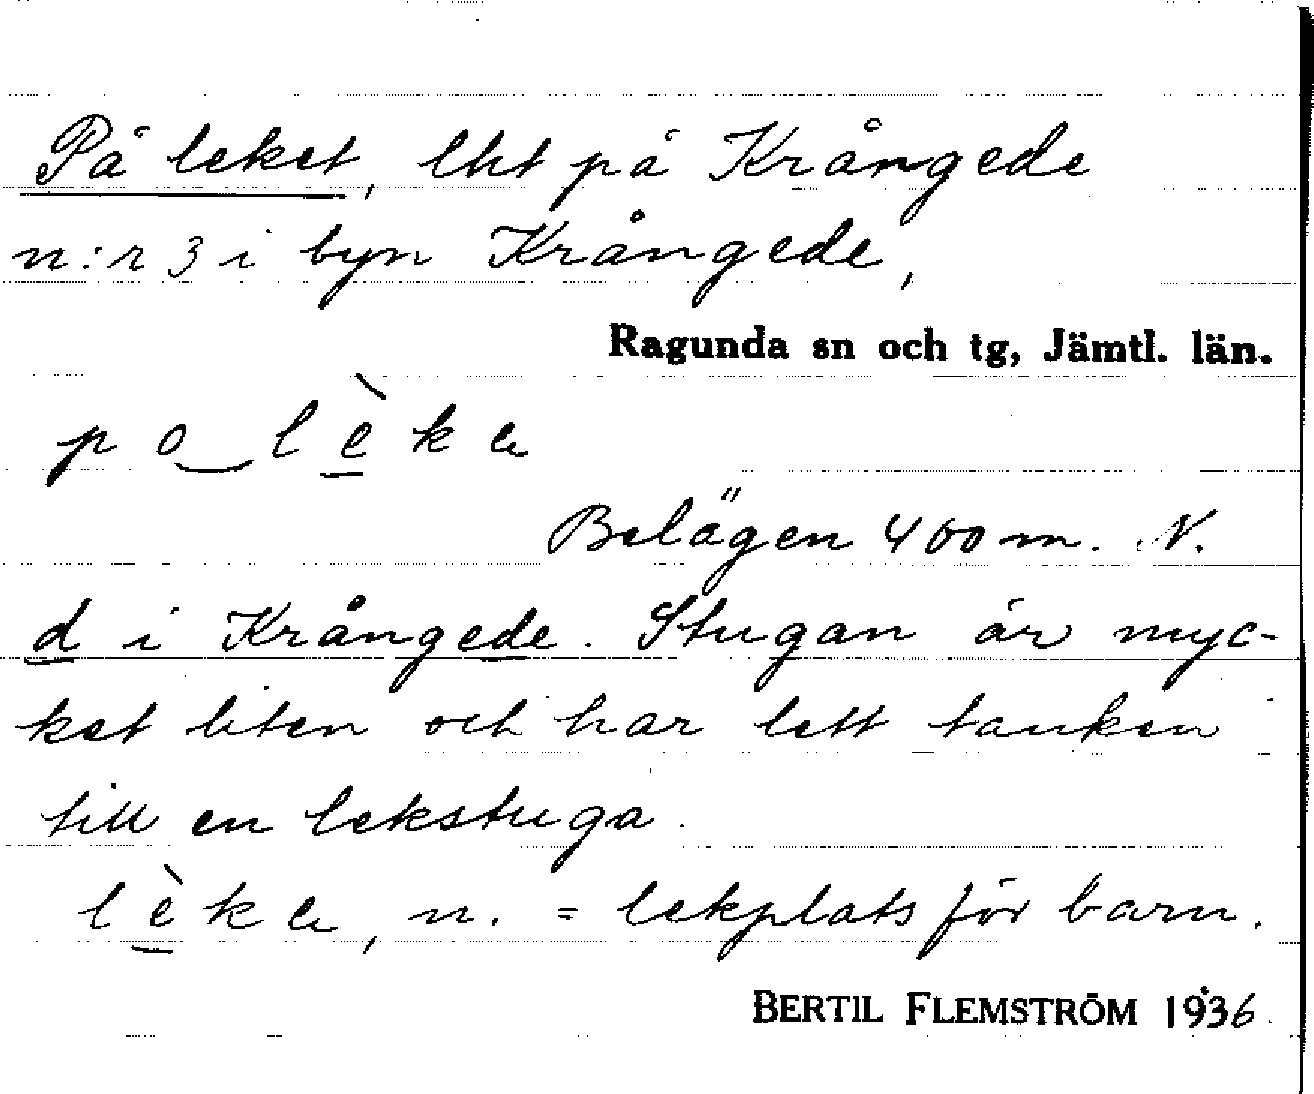 På leket, lht på Krångede
n:r 3 i byn Krångede,
Ragunda sn och tg, Jämtl. län.
po‿lèka
Belägen 400 m. N.
d i Krångede. Stugan är myc-
ket liten och har lett tanken
till en lekstuga.
lèka, n. = lekplats för barn.
BERTIL FLEMSTRÖM 1936